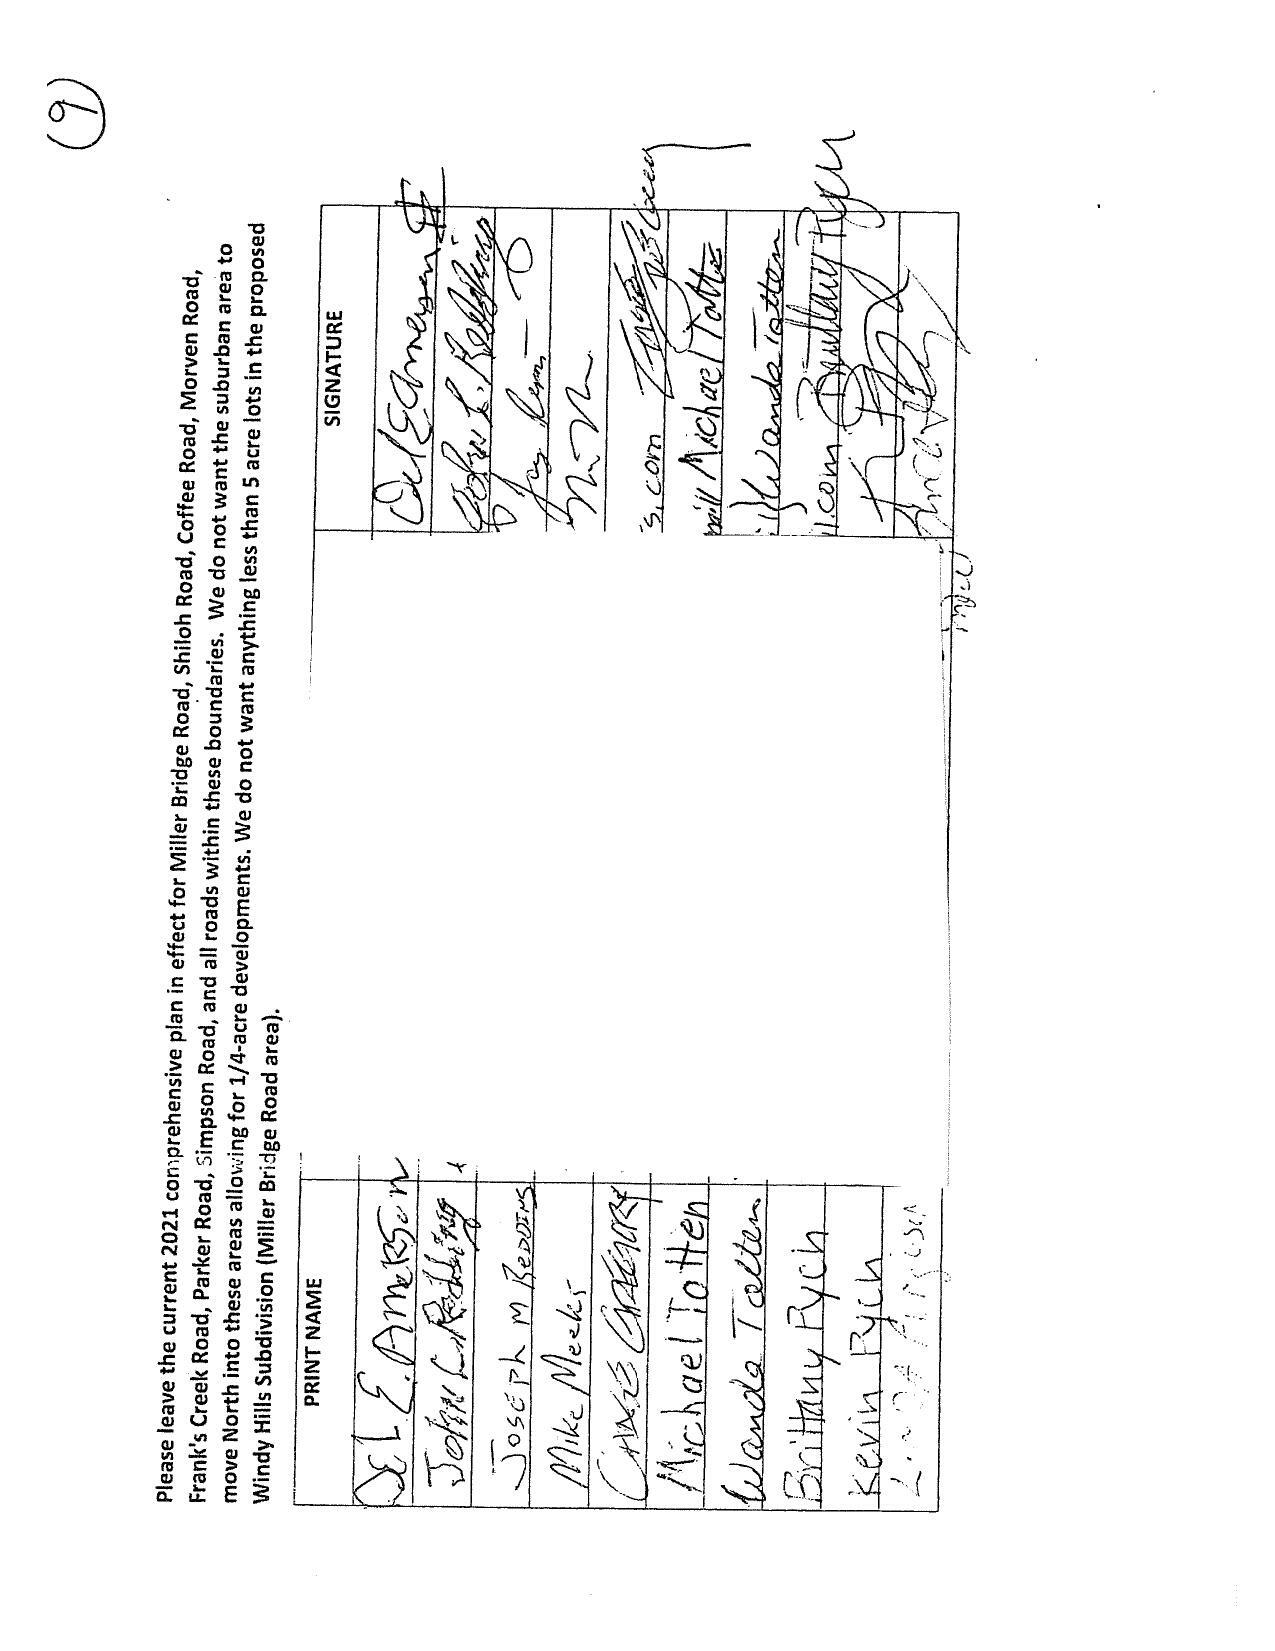 (9)
Please leave the current 2021 comprehensive plan in effect for Miller Bridge Road, Shiloh Road, Coffee Road, Morven Road,
Frank's Creek Road, Parker Road, Simpson Road, and all roads within these boundaries. We do not want the suburban area to
move North into these areas allowing for 1/4-acre developments. We do not want anything less than 5 acre lots in the proposed
Windy Hills Subdivision (Miller Bridge Road area).
PRINT NAME SIGNATURE
Del E. Amerson Del E Amerson
John L Redding John L. Redding
Joseph M Redding
Mike Meeks
Gregory s.com
Michael Totten mill Michael Totte
Wanda Totten Wanda Totten
Brittany Pych .com Brittany Pych
Kevin Pych K